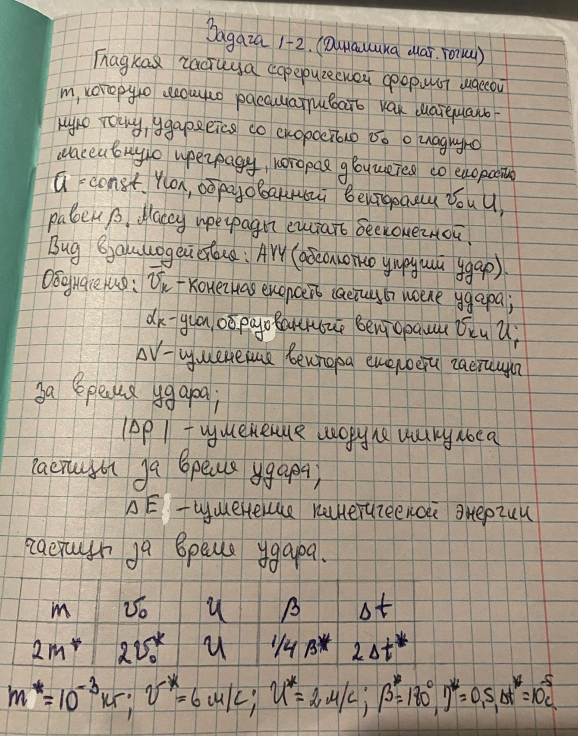 Задача 1-2. (Динамика мат. точки)
Гладкая частица сферической формы массой
m, которую можно рассматривать как материаль-
ную точку, ударяется со скоростью v₀ о гладкую
массивную преграду, которая движется со скоростью
U̅ = const. Угол, образованный векторами v̅₀ и U,
равен β. Массу преграды считать бесконечной.
Вид взаимодействия: АУУ (абсолютно упругий удар).
Обозначения: v̅ₖ - конечная скорость частицы после удара;
αₖ - угол, образованный векторами v̅ₖ и U;
ΔV - изменение вектора скорости частицы
за время удара;
|Δp| - изменение модуля импульса
частицы за время удара;
ΔE - изменение кинетической энергии
частицы за время удара.
m v₀ U β Δt
2m* 2v₀* U 1/4 β* 2Δt*
m* = 10⁻³ кг; v* = 6 м/с; U* = 2 м/с; β* = 180°, = 0,5, Δt* = 10⁻⁵ с.